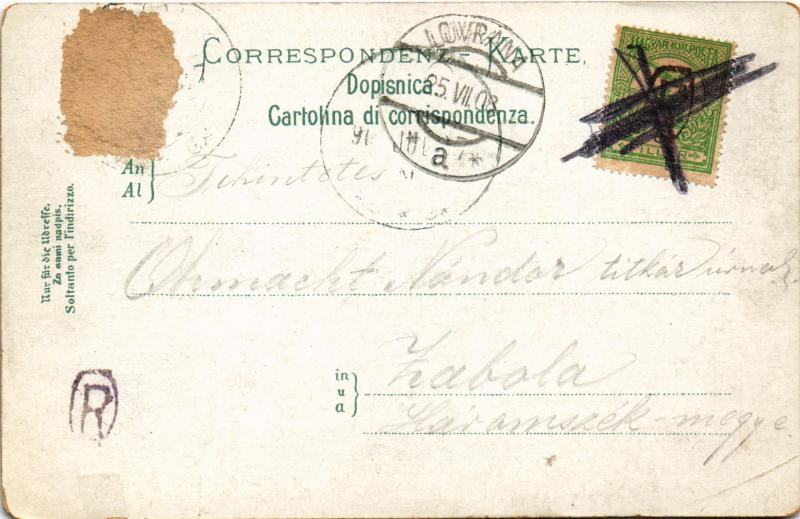 CORRESPONDENZ-KARTE.
Dopisnica.
Cartolina di corrispondenza.
LOVRANA
25.VII.03
a
MAGYAR KIR. POSTA
An
Al
Tekintetes
Ohmacht Nándor titkár úrnak
in
u
a
Zabola
Háromszék-megye
Nur für die Adresse.
Za sami nadpis.
Soltanto per l'indirizzo.
R